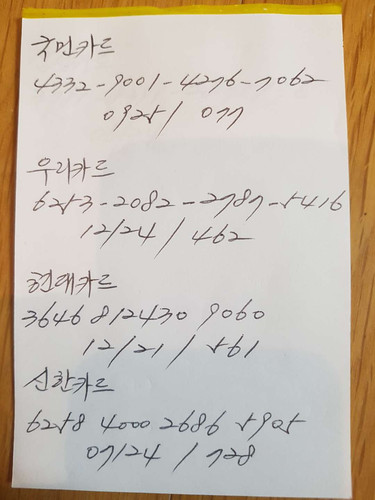 국민카드
4332-9001-4276-7062
0925 / 077
우리카드
6253-2082-2787-5416
12/24 / 462
현대카드
3646 812430 9060
12/21 / 561
신한카드
6258 4000 2686 5905
07/24 / 728